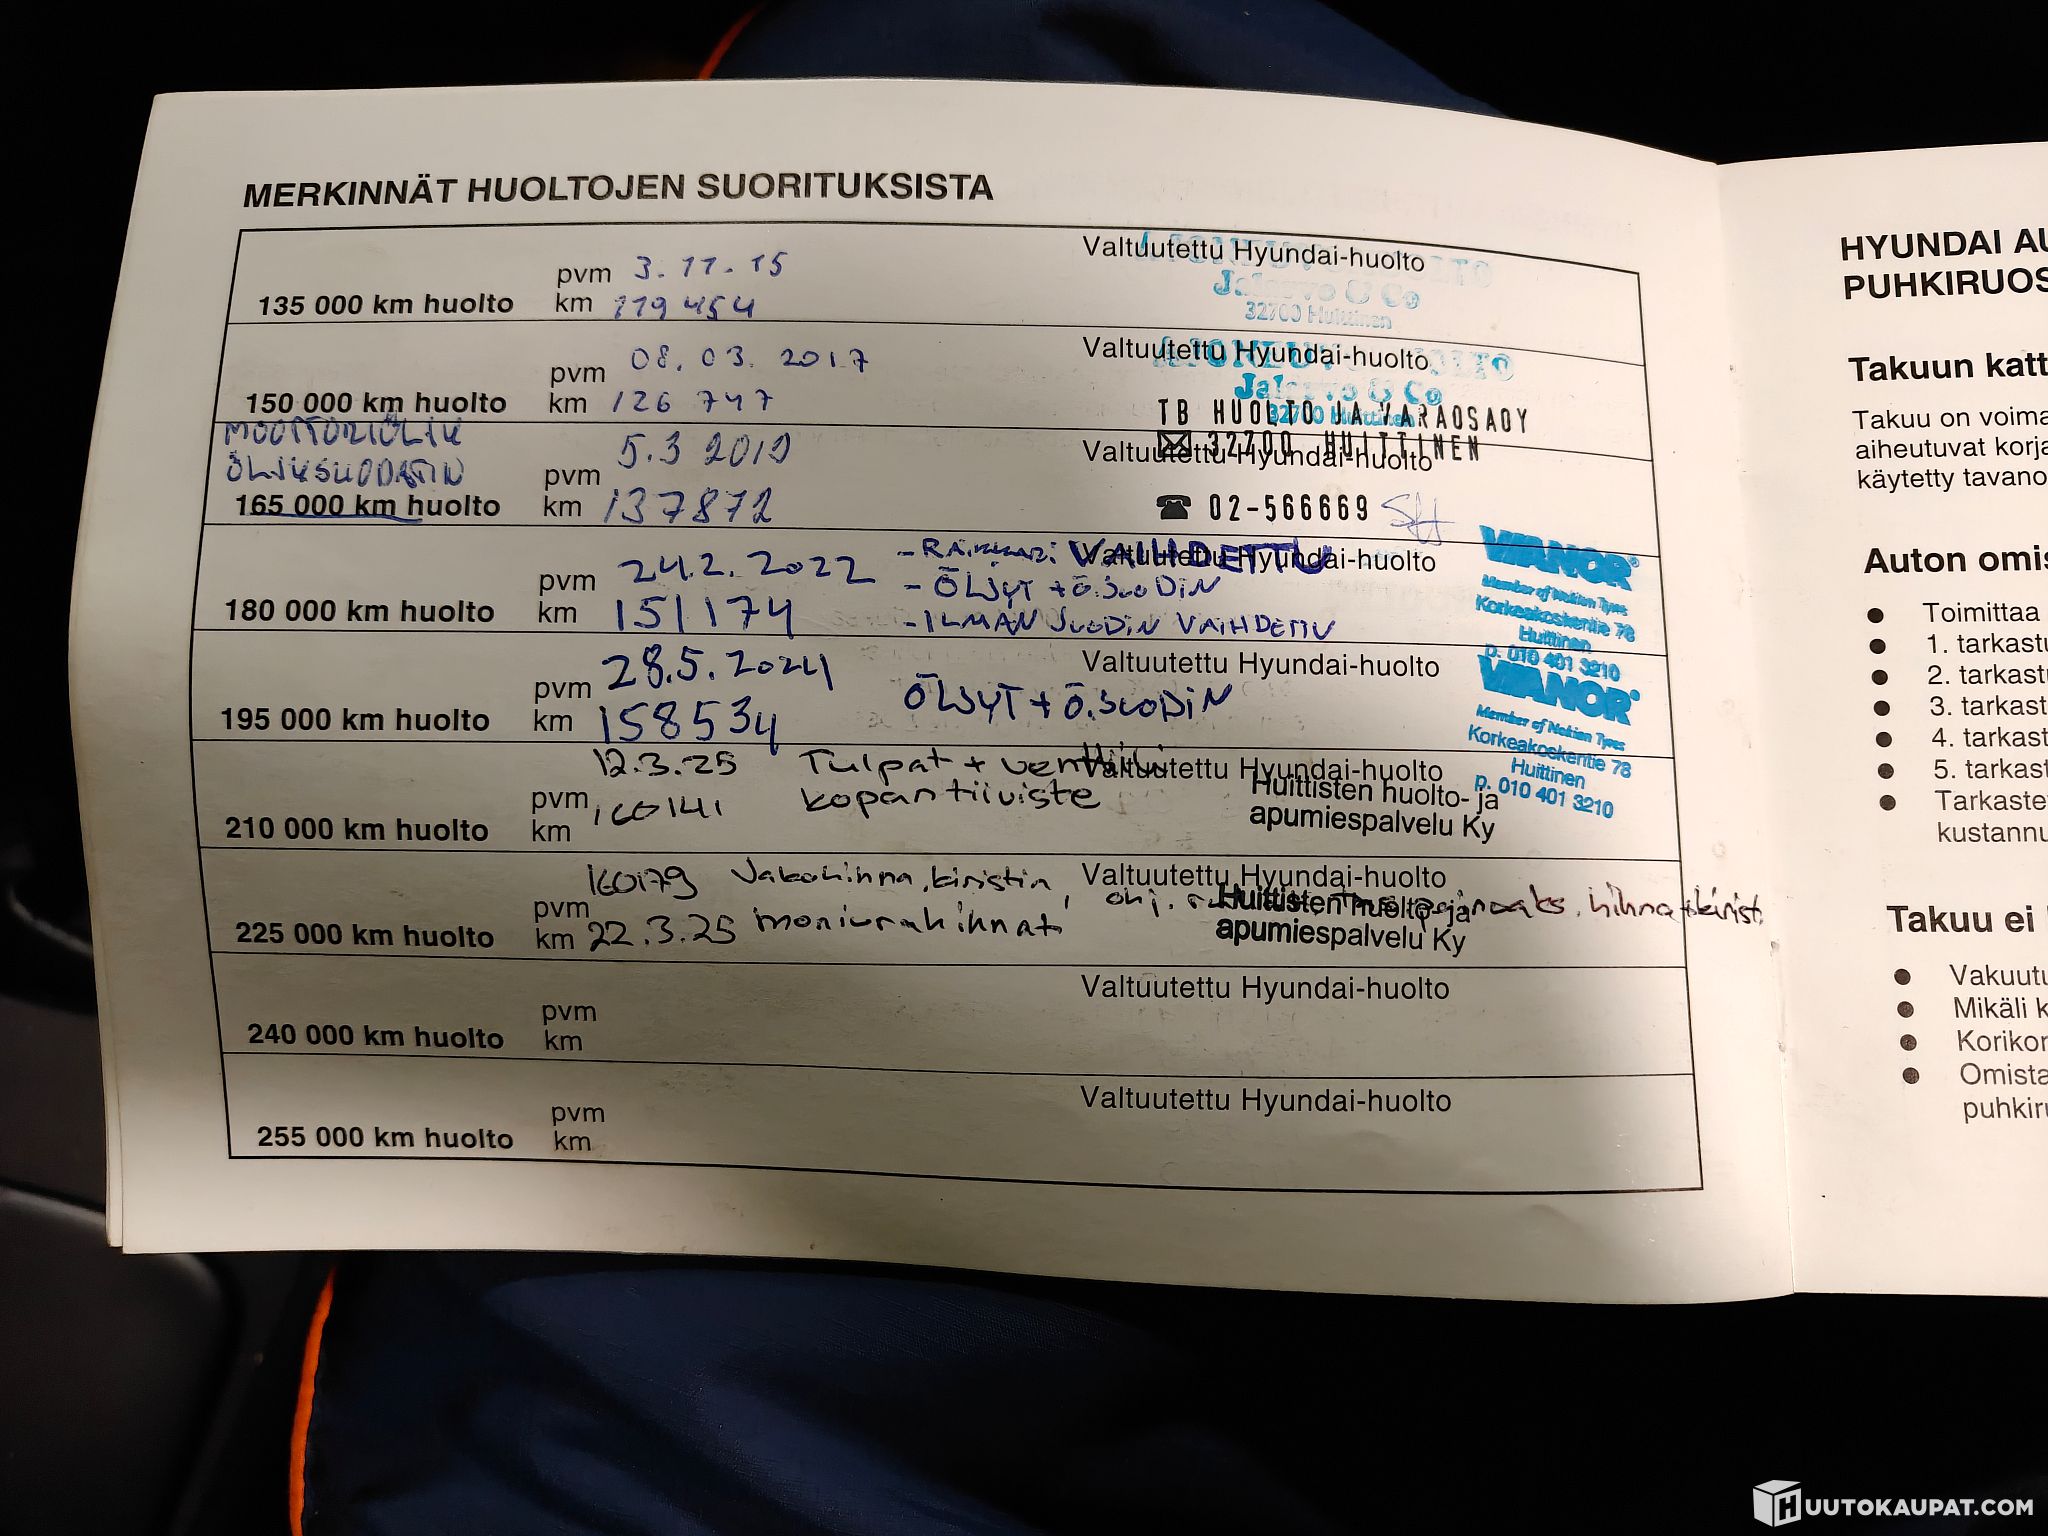 MERKINNÄT HUOLTOJEN SUORITUKSISTA
135 000 km huolto
pvm 3.11.15
km 119 454
Valtuutettu Hyundai-huolto
Jalarvo & Co
32700 Huittinen
150 000 km huolto
pvm 08.03.2017
km 126 747
Valtuutettu Hyundai-huolto
Jalarvo & Co
32700 Huittinen
TB HUOLTO JA VARAOSA OY
32700 HUITTINEN
MOOTTORIÖLJY
ÖLJYNSUODATIN
165 000 km huolto
pvm 5.3 2019
km 137872
Valtuutettu Hyundai-huolto
02-566669 SH
180 000 km huolto
pvm 24.2.2022
km 151174
Valtuutettu Hyundai-huolto
- VAIHDETTU
- ÖLJYT + Ö.SUODIN
- ILMAN SUODIN VAIHDETTU
VIANOR
Member of Nokian Tyres
Korkeakoskentie 78
Huittinen
p. 010 401 3210
195 000 km huolto
pvm 28.5.2024
km 158534
Valtuutettu Hyundai-huolto
ÖLJYT + Ö.SUODIN
VIANOR
Member of Nokian Tyres
Korkeakoskentie 78
Huittinen
p. 010 401 3210
210 000 km huolto
pvm 12.3.25
km 160141
Tulpat + venttiili
kopantiiviste
Valtuutettu Hyundai-huolto
Huittisten huolto- ja
apumiespalvelu Ky
225 000 km huolto
pvm 160179
km 22.3.25
Jakohihna, kiristin,
moniurahihnat
Valtuutettu Hyundai-huolto
hihna + kirist.
Huittisten huolto- ja
apumiespalvelu Ky
240 000 km huolto
pvm
km
Valtuutettu Hyundai-huolto
255 000 km huolto
pvm
km
Valtuutettu Hyundai-huolto
HYUNDAI AU
PUHKIRUOS
Takuun katt
Takuu on voima
aiheutuvat korja
käytetty tavano
Auton omis
● Toimittaa
● 1. tarkastu
● 2. tarkastu
● 3. tarkast
● 4. tarkast
● 5. tarkast
● Tarkastev
kustannu
Takuu ei
● Vakuutu
● Mikäli k
● Korikor
● Omista
puhkiru
HUUTOKAUPAT.COM